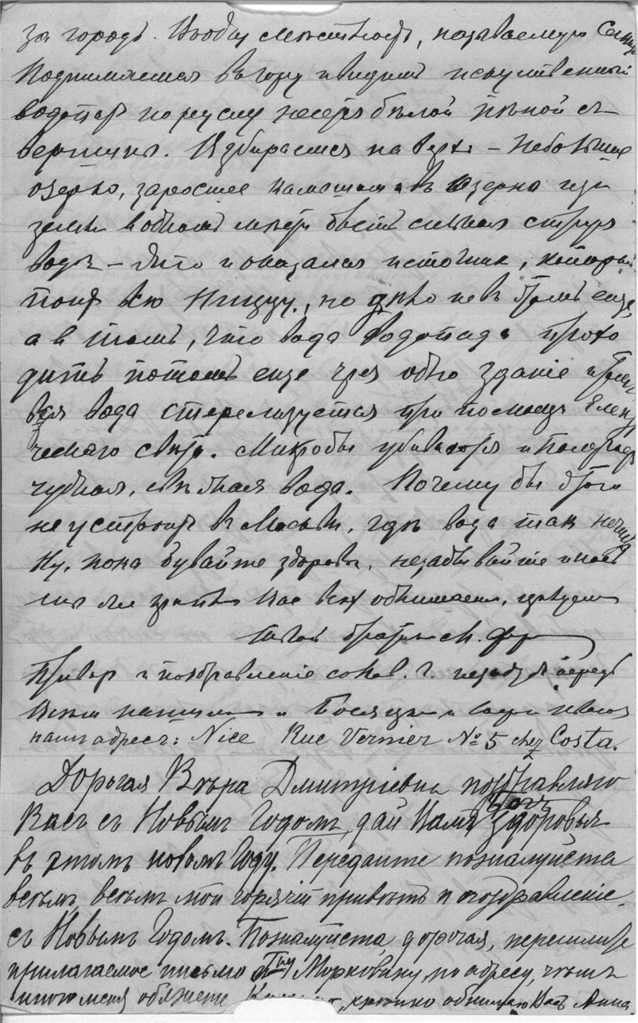 за городъ. Чтобы местность, называемую
Поднимаемся въ гору и видимъ искуственный
водопадъ по руслу несетъ бѣлой пѣной съ
вершины. Взбираемся на верхъ – небольшое
озерко, заросшее камышомъ въ озерко изъ
земли въ одномъ мѣстѣ бьетъ сильная струя
воды – это и оказался источникъ, который
поитъ всю Ниццу, но дѣло не въ этомъ еще
а въ томъ, что вода водопада прохо
дитъ потомъ еще чрез одно зданіе и тамъ
вся вода стерелизуется при помощи Элек
ческаго свѣта. Микробы убиваются и получается
чудная, свѣжая вода. Почему бы этого
не устроить въ Москвѣ, гдѣ вода так
Ну, пока бувайте здоровы, незабывайте и насъ
Вас всѣхъ обнимаемъ, цѣлуемъ
братъ
Привѣтъ и поздравленіе со нов. г. передайте
всѣмъ нашимъ и
нашъ адресъ: Nice Rue Vernier № 5 chez Costa.
Дорогая Вѣра Дмитріевна поздравляю
Васъ съ Новымъ Годомъ, дай Вамъ Богъ Здоровья
въ этомъ новомъ Году. Передайте пожалуйста
всѣмъ, всѣмъ мой горячій привѣтъ и поздравленіе
съ Новымъ Годомъ. Пожалуйста дорогая, перешлите
прилагаемое письмо Морковину, по адресу, чѣмъ
много меня обяжете крѣпко обнимаю Васъ Анна